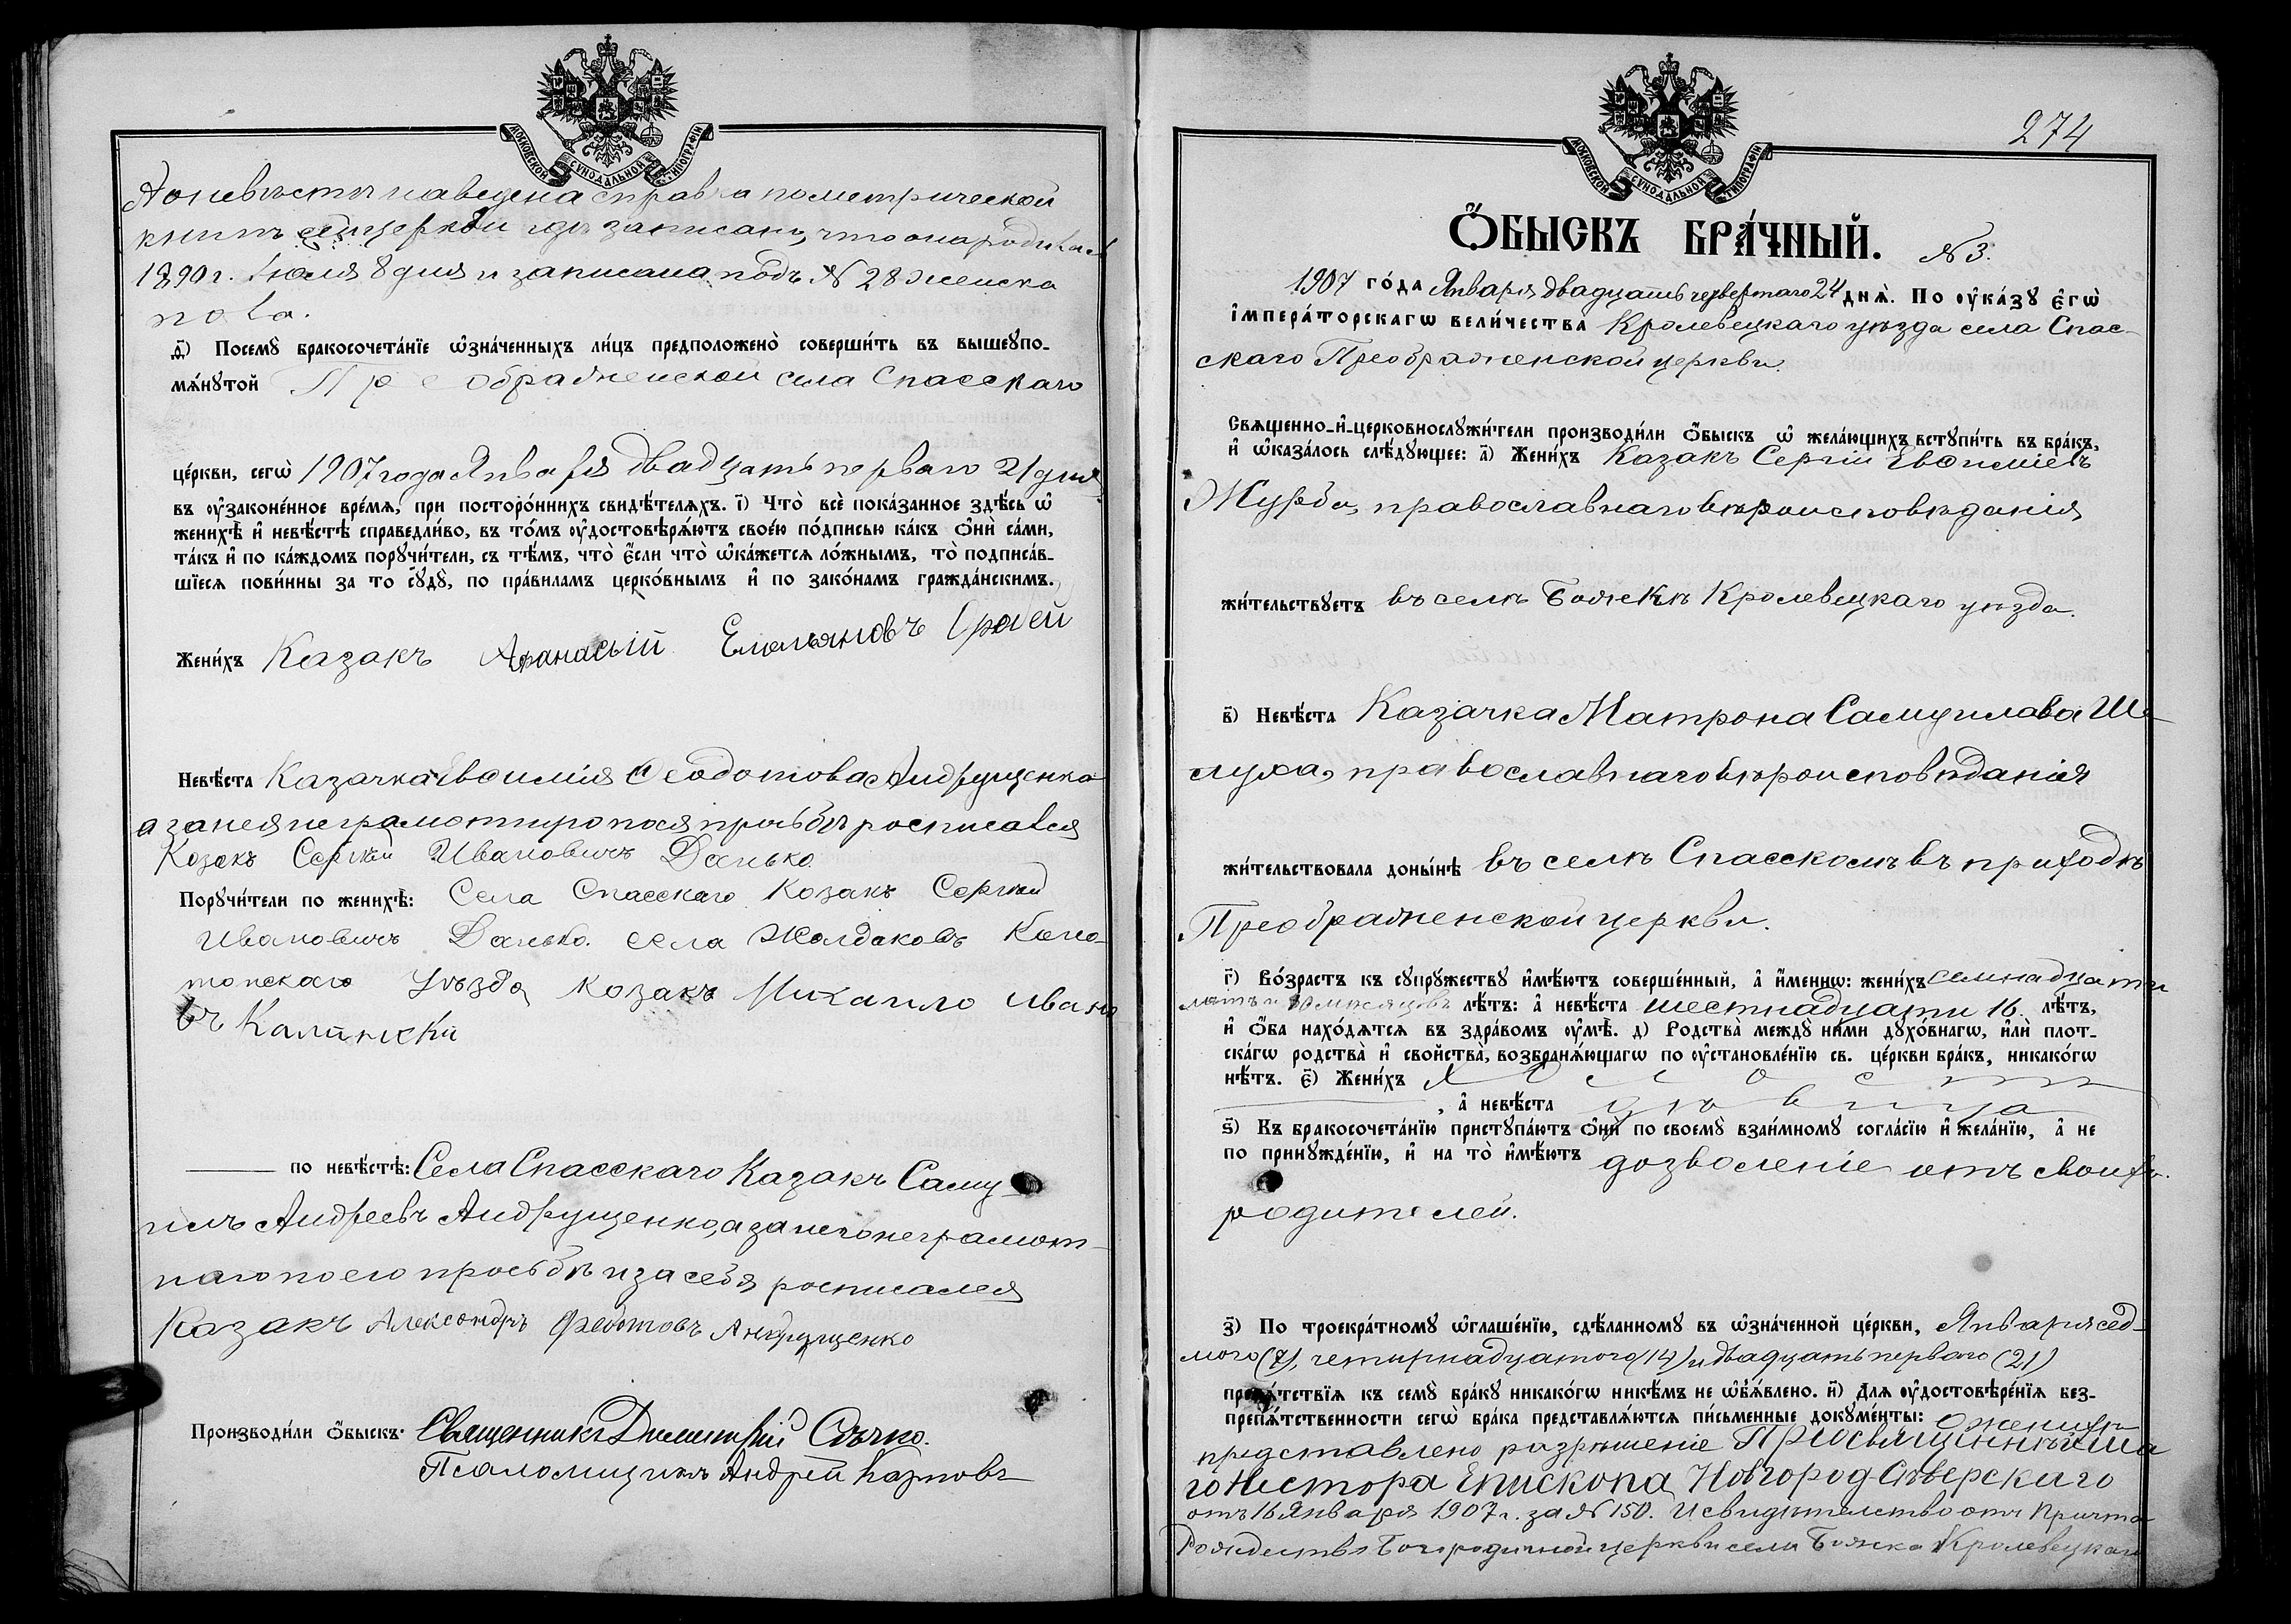 МОСКОВСКОЙ СУНОДАЛЬНОЙ ТИПОГРАФІИ
А о невѣстѣ наведена справка по метрической
книгѣ сей церкви гдѣ записано, что она родилась
1890 г. Іюля 8 дня и записана подъ № 28 женска
пола.
д҃) Посемꙋ̀ бракосочета́нїе ѡ҆зна́ченныхъ ли́цъ предположенѡ̀ соверши́ть въ вышеꙋпо-
мѧ́нꙋтой Преображенской села Спасскаго
це́ркви, сегѡ̀ 1907 года Января двадцать перваго 21 дня
въ ᲂу҆зако́ненное вре́мѧ, при посторо́ннихъ свидѣ́телѧхъ. і҃) Что̀ всѐ пока́занное здѣ́сь ѡ҆
женихѣ̀ и҆ невѣ́стѣ справедли́во, въ то́мъ ᲂу҆достовѣрѧ́ютъ свое́ю по́дписью ка́къ ѻ҆нѝ са́ми,
та́къ и҆ по ка́ждомъ порꙋчи́тели, съ тѣ́мъ, что̀ є҆́сли что̀ ѡ҆ка́жетсѧ ло́жнымъ, то̀ подписа́в-
шїесѧ пови́нны за то сꙋдꙋ̀, по пра́виламъ церко́внымъ и҆ по зако́намъ гражда́нскимъ.
Жени́хъ Казакъ Афанасій Емельяновъ
Невѣ́ста Казачка Евѳимія Ѳеодотова Андрущенко
а за нея неграмотную по ея просьбѣ росписался
Козакъ Сергѣй Ивановичъ Данько
Порꙋчи́тели по женихѣ̀: Села Спасскаго Козакъ Сергѣй
Ивановичъ Данько. села Жолдаковъ Коно-
топскаго уѣзда, козакъ Михаило Ивано
въ Калинскій
по невѣ́стѣ: Села Спасскаго Казакъ Саму-
илъ Андреевъ Андрущенко, а за него неграмот-
наго по его просьбѣ и за себя росписался
Казакъ Александръ Федотовъ Андрущенко
Производи́ли ѻ҆́быскъ: Священникъ Димитрій Сѣчко.
Псаломщикъ Андрей Карповъ
МОСКОВСКОЙ СУНОДАЛЬНОЙ ТИПОГРАФІИ
274
Ѻ҆́БЫСКЪ БРА́ЧНЫЙ. № 3.
1907 го́да Января двадцать четвертаго 24 днѧ̀. По ᲂу҆ка́зꙋ є҆гѡ̀
і҆мпера́торскагѡ вели́чества Кролевецкаго уѣзда села Спас-
скаго Преображенской церкви.
Свѧщенно-и҆-церковнослꙋжи́тели производи́ли ѻ҆́быскъ ѡ҆ жела́ющихъ встꙋпи́ть въ бра́къ,
и҆ ѡ҆каза́лось слѣ́дꙋющее: а҃) Жени́хъ Казакъ Сергій Евѳиміевъ
Журба, православнаго вѣроисповѣданія
жи́тельствꙋетъ въ селѣ Божкѣ Кролевецкаго уѣзда.
в҃) Невѣ́ста Казачка Матрона Самуилова Ше-
луха, православнаго вѣроисповѣданія
жи́тельствовала доны́нѣ въ селѣ Спасскомъ въ приходѣ
Преображенской церкви.
г҃) Во́зрастъ къ сꙋпрꙋ́жествꙋ и҆мѣ́ютъ соверше́нный, а҆ и҆́меннѡ: жени́хъ семнадцати
лѣтъ и мѣсяцовъ лѣ́тъ: а҆ невѣ́ста шестнадцати 16 лѣ́тъ,
и҆ ѻ҆́ба нахо́дѧтсѧ въ здра́вомъ ᲂу҆мѣ̀. д) Родства̀ междꙋ̀ ни́ми дꙋхо́внагѡ, и҆лѝ плот-
ска́гѡ родства̀ и҆ сво́йства̀, возбранѧ́ющагѡ по ᲂу҆становле́нїю св. це́ркви бра́къ, никако́гѡ
нѣ́тъ. є҃) Жени́хъ холостъ
, а҆ невѣ́ста дѣвица
ѕ҃) Къ бракосочета́нїю пристꙋпа́ютъ ѻ҆нѝ по своемꙋ̀ взаи́мномꙋ согла́сїю и҆ жела́нїю, а҆ не
по принꙋжде́нїю, и҆ на то̀ и҆мѣ́ютъ дозволеніе отъ своихъ
родителей.
з҃) По троекра́тномꙋ ѡ҆глаше́нїю, сдѣ́ланномꙋ въ ѡ҆зна́ченной це́ркви, Января сед-
мого (7), четырнадцатого (14) и двадцать перваго (21)
препѧ́тствїѧ къ семꙋ̀ бра́кꙋ никако́гѡ никѣ́мъ не ѡ҆б̾ѧ́влено. и҃) Длѧ ᲂу҆достовѣре́нїѧ без-
препѧ́тственности сегѡ̀ бра́ка представлѧ́ютсѧ пи́сьменные докꙋме́нты: о женихѣ
представлено разрѣшеніе Преосвященнѣйша
го Нестора Епископа Новгород-Сѣверскаго
отъ 16 Января 1907 г. за № 150. И свидѣтелство отъ Причта
Рождества Богородичной церкви села Божка Кролевецкаго